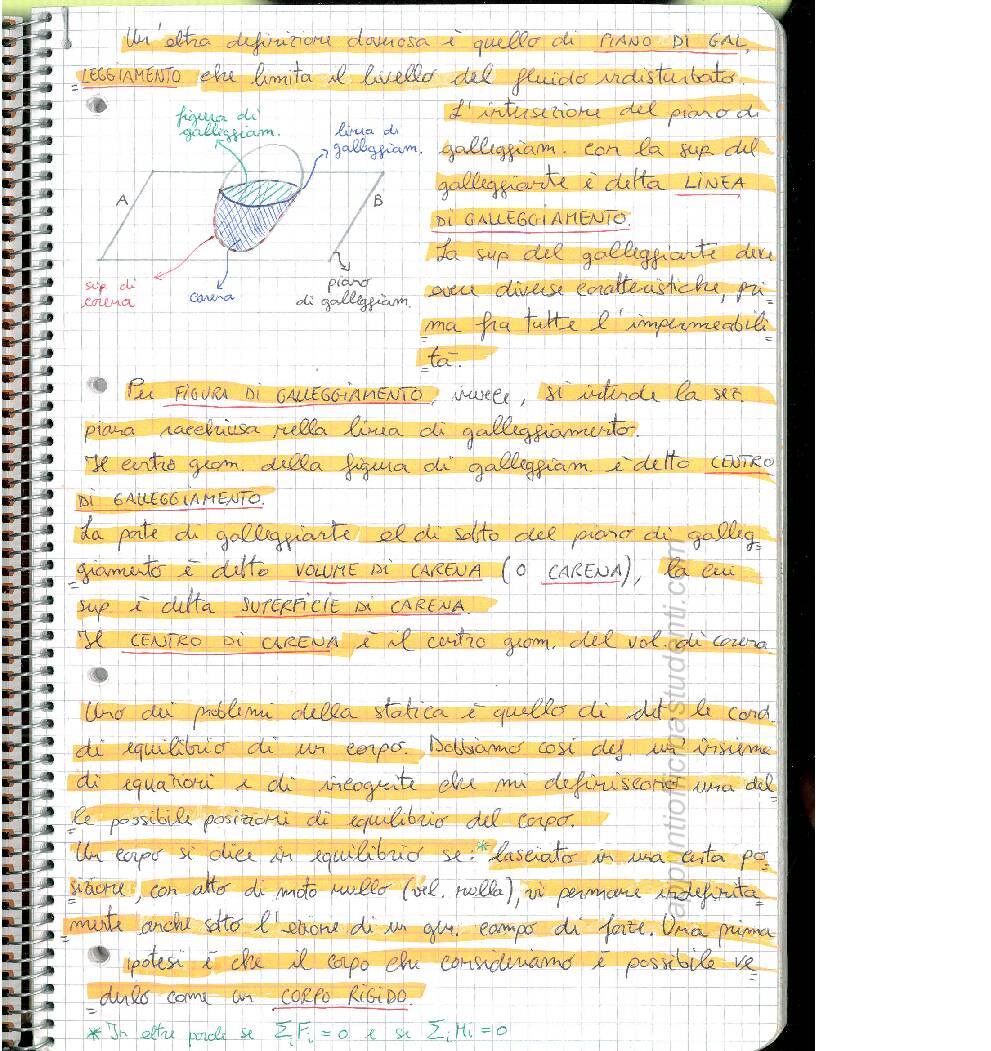 Un'altra definizione doverosa è quello di PIANO DI GAL=
LEGGIAMENTO che limita il livello del fluido indisturbato.
L'intersezione del piano di
galleggiam. con la sup del
galleggiante è detta LINEA
DI GALLEGGIAMENTO.
La sup del galleggiante deve
avere diverse caratteristiche, pri=
ma fra tutte l'impermeabili=
tà.
figura di
galleggiam.
linea di
galleggiam.
A
B
sup di
carena
carena
piano
di galleggiam.
Per FIGURA DI GALLEGGIAMENTO, invece, si intende la sez.
piana racchiusa nella linea di galleggiamento.
Il centro geom. della figura di galleggiam. è detto CENTRO
DI GALLEGGIAMENTO.
La parte di galleggiante al di sotto del piano di galleg=
giamento è detto VOLUME DI CARENA (O CARENA), la cui
sup è detta SUPERFICIE DI CARENA.
Il CENTRO DI CARENA è il centro geom. del vol. di carena
Uno dei problemi della statica è quello di det le cond.
di equilibrio di un corpo. Dobbiamo così def un insieme
di equazioni e di incognite che mi definiscono una del=
le possibile posizioni di equilibrio del corpo.
Un corpo si dice in equilibrio se:* lasciato in una certa po=
sizione, con atto di moto nullo (vel. nulla), vi permane indefinita=
mente anche sotto l'azione di un qln. campo di forze. Una prima
ipotesi è che il corpo che consideriamo è possibile ve=
derlo come un CORPO RIGIDO.
* In altre parole se Σi Fi = 0 e se Σi Mi = 0
appuntioficinastudenti.com